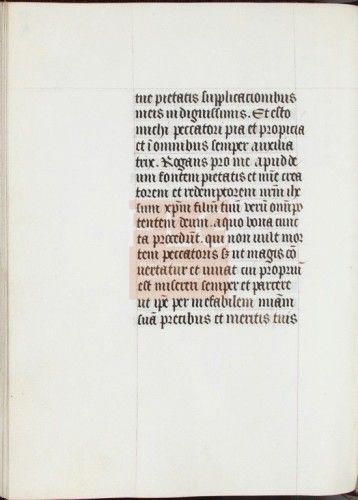 tue pietatis supplicacionibus
meis indignissimis. Et esto
michi peccatori pia et propicia
et ī omnibus semper auxilia
trix. Rogans pro me apud de
um fontem pietatis et mīe crea
torem et redemptorem nr̄m ihe
sum xp̄m filiū tuū verū om̄ipo
tentem deum. a quo bona cunc
ta procedūt. qui non vult mor
tem peccatoris sꝫ ut magis cō
uertatur et uiuat cui propriū
est misereri semper et parcere
ut ip̄e per inefabilem
suā precibus et meritis tuis